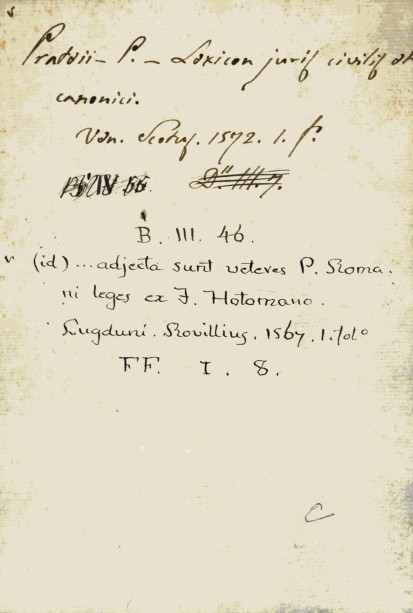 Prateii - P. - Lexicon juris civilis et
canonici.
Ven. Scotus. 1572. 1. f.
D. III. 7.
B. III. 46.
v (id)... adjecta sunt veteres P. Roma
ni leges ex J. Hotomano.
Lugduni. Rovillius. 1567. 1. folo
FF. I. 8.
C